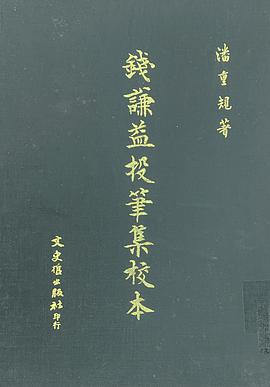 潘重規著
錢謙益投筆集校本
文史哲出版社印行